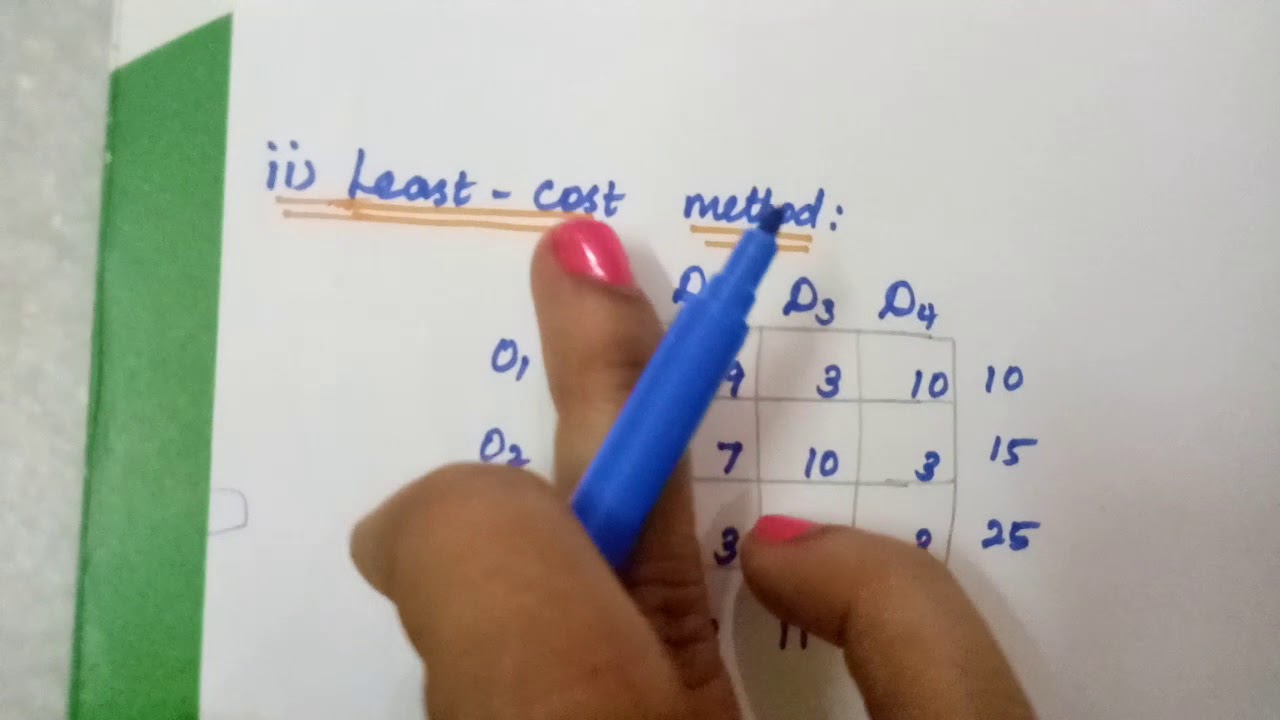 ii) Least - cost method:
D3 D4
O1 9 3 10 10
O2 7 10 3 15
3 25
11